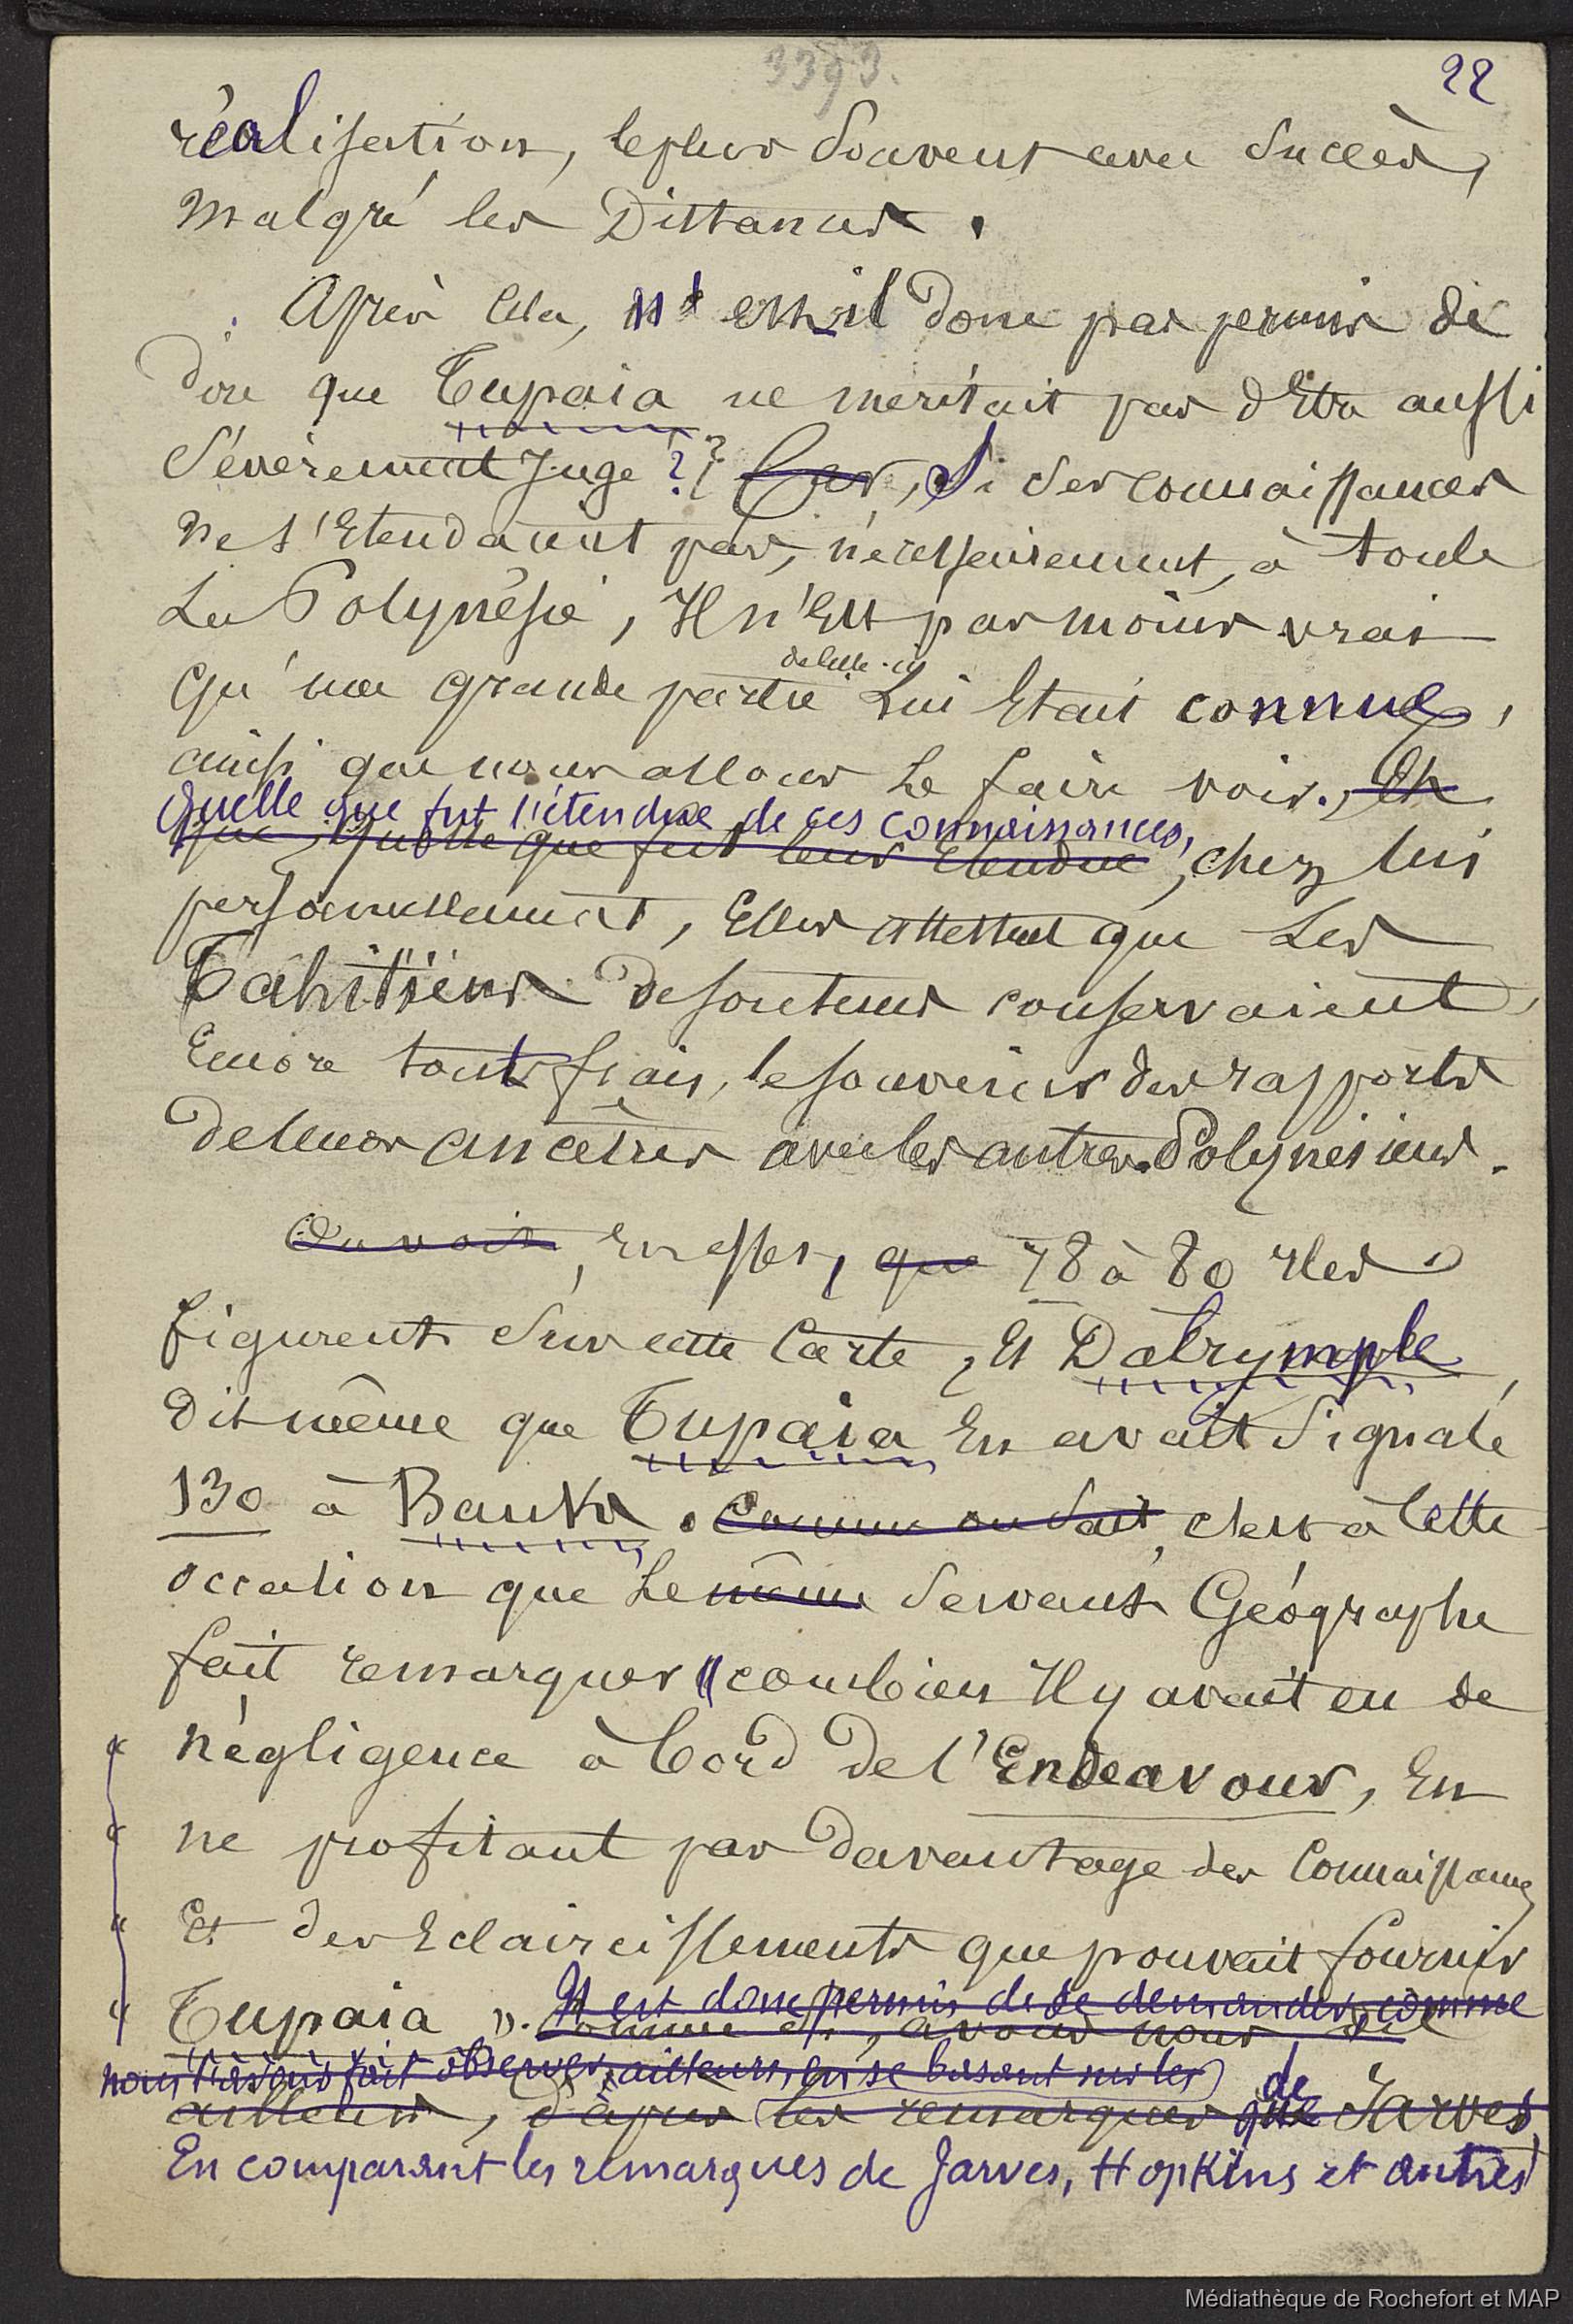 3393.
22
réalisation, le plus souvent avec succès,
malgré les Distances.
Après cela, n'est-il donc pas permis de
dire que Tupaia ne méritait pas d'Etre aussi
sévèrement Jugé ? ~~Car~~, Si ses connaissances
ne s'Etendaient pas, nécessairement, à toute
La Polynésie, Il n'Est pas moins vrai
qu'une grande partie de celle-ci Lui Etait connue,
ainsi que nous allons Le faire voir. ~~Et~~
Quelle que fut l'étendue de ces connaissances,
~~que, quelle que fut leur Etendue~~, chez lui
personnellement, Elles attestent que Les
Tahitiens de son temps conservaient
Encore tout frais, le souvenir des rapports
de leurs ancêtres avec les autres Polynésiens.
~~On voit~~, En effet, ~~que~~ 78 à 80 Iles
figurent sur cette Carte, Et Dalrymple
dit même que Tupaia En avait signalé
130 à Banks. ~~Comme on sait~~, c'est à cette
occasion que Le ~~même~~ savant Géographe
fait remarquer "combien Il y avait eu de
négligence à bord de l'Endeavour, En
ne profitant pas davantage des Connaissances
Et des Eclaircissements que pouvait fournir
Tupaia ". ~~Il est donc permis de se demander, comme~~
~~Comme, avons nous dit~~
~~nous l'avons fait observer, ailleurs, en se basant sur les~~
~~ailleurs, d'après les remarques que~~ de ~~Jarves~~
En comparant les remarques de Jarves, Hopkins et autres
Médiathèque de Rochefort et MAP